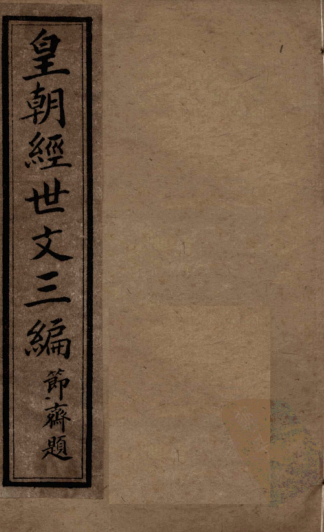 皇朝經世文三編
節齊題